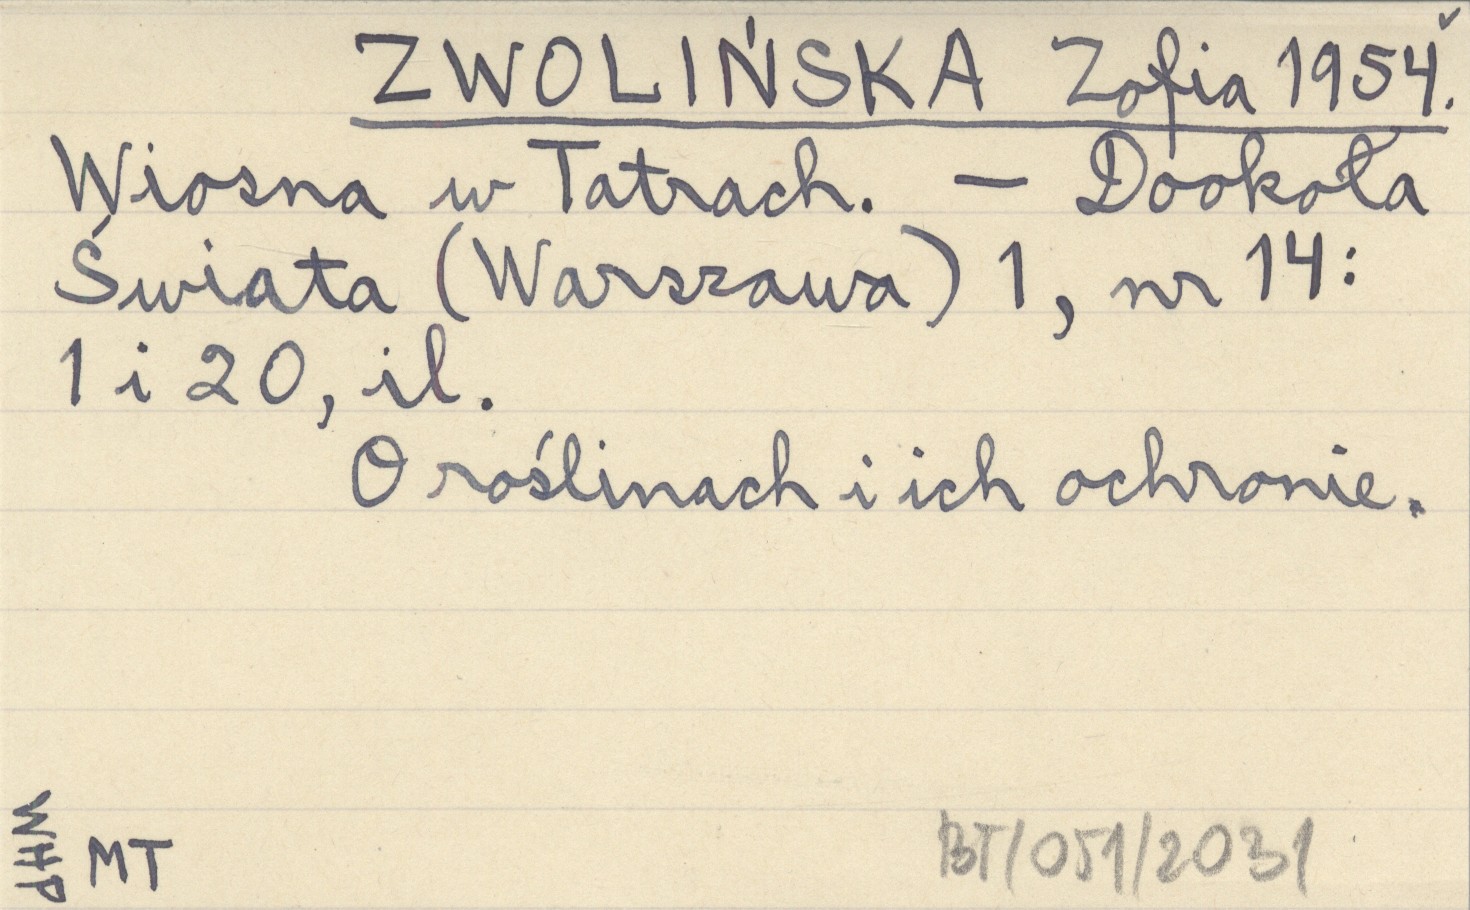 ZWOLIŃSKA Zofia 1954.
Wiosna w Tatrach. — Dookoła
Świata (Warszawa) 1, nr 14:
1 i 20, il.
O roślinach i ich ochronie.
WHP
MT
BT/051/2031